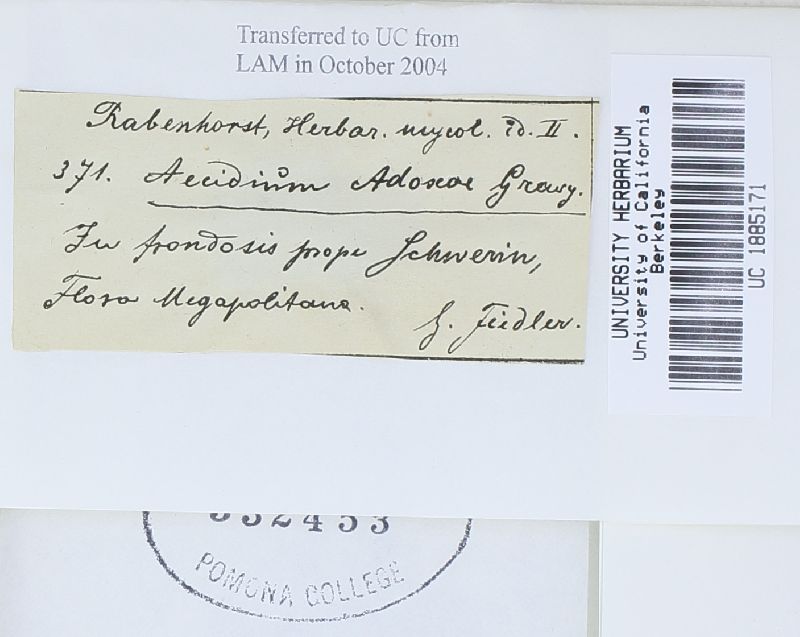 Transferred to UC from
LAM in October 2004
Rabenhorst, Herbar. mycol. Ed. II.
371. Aecidium Adoxae Gravy.
In frondosis prope Schwerin,
Flora Megapolitana.
G. Fiedler.
UNIVERSITY HERBARIUM
University of California
Berkeley
UC 1885171
332453
POMONA COLLEGE